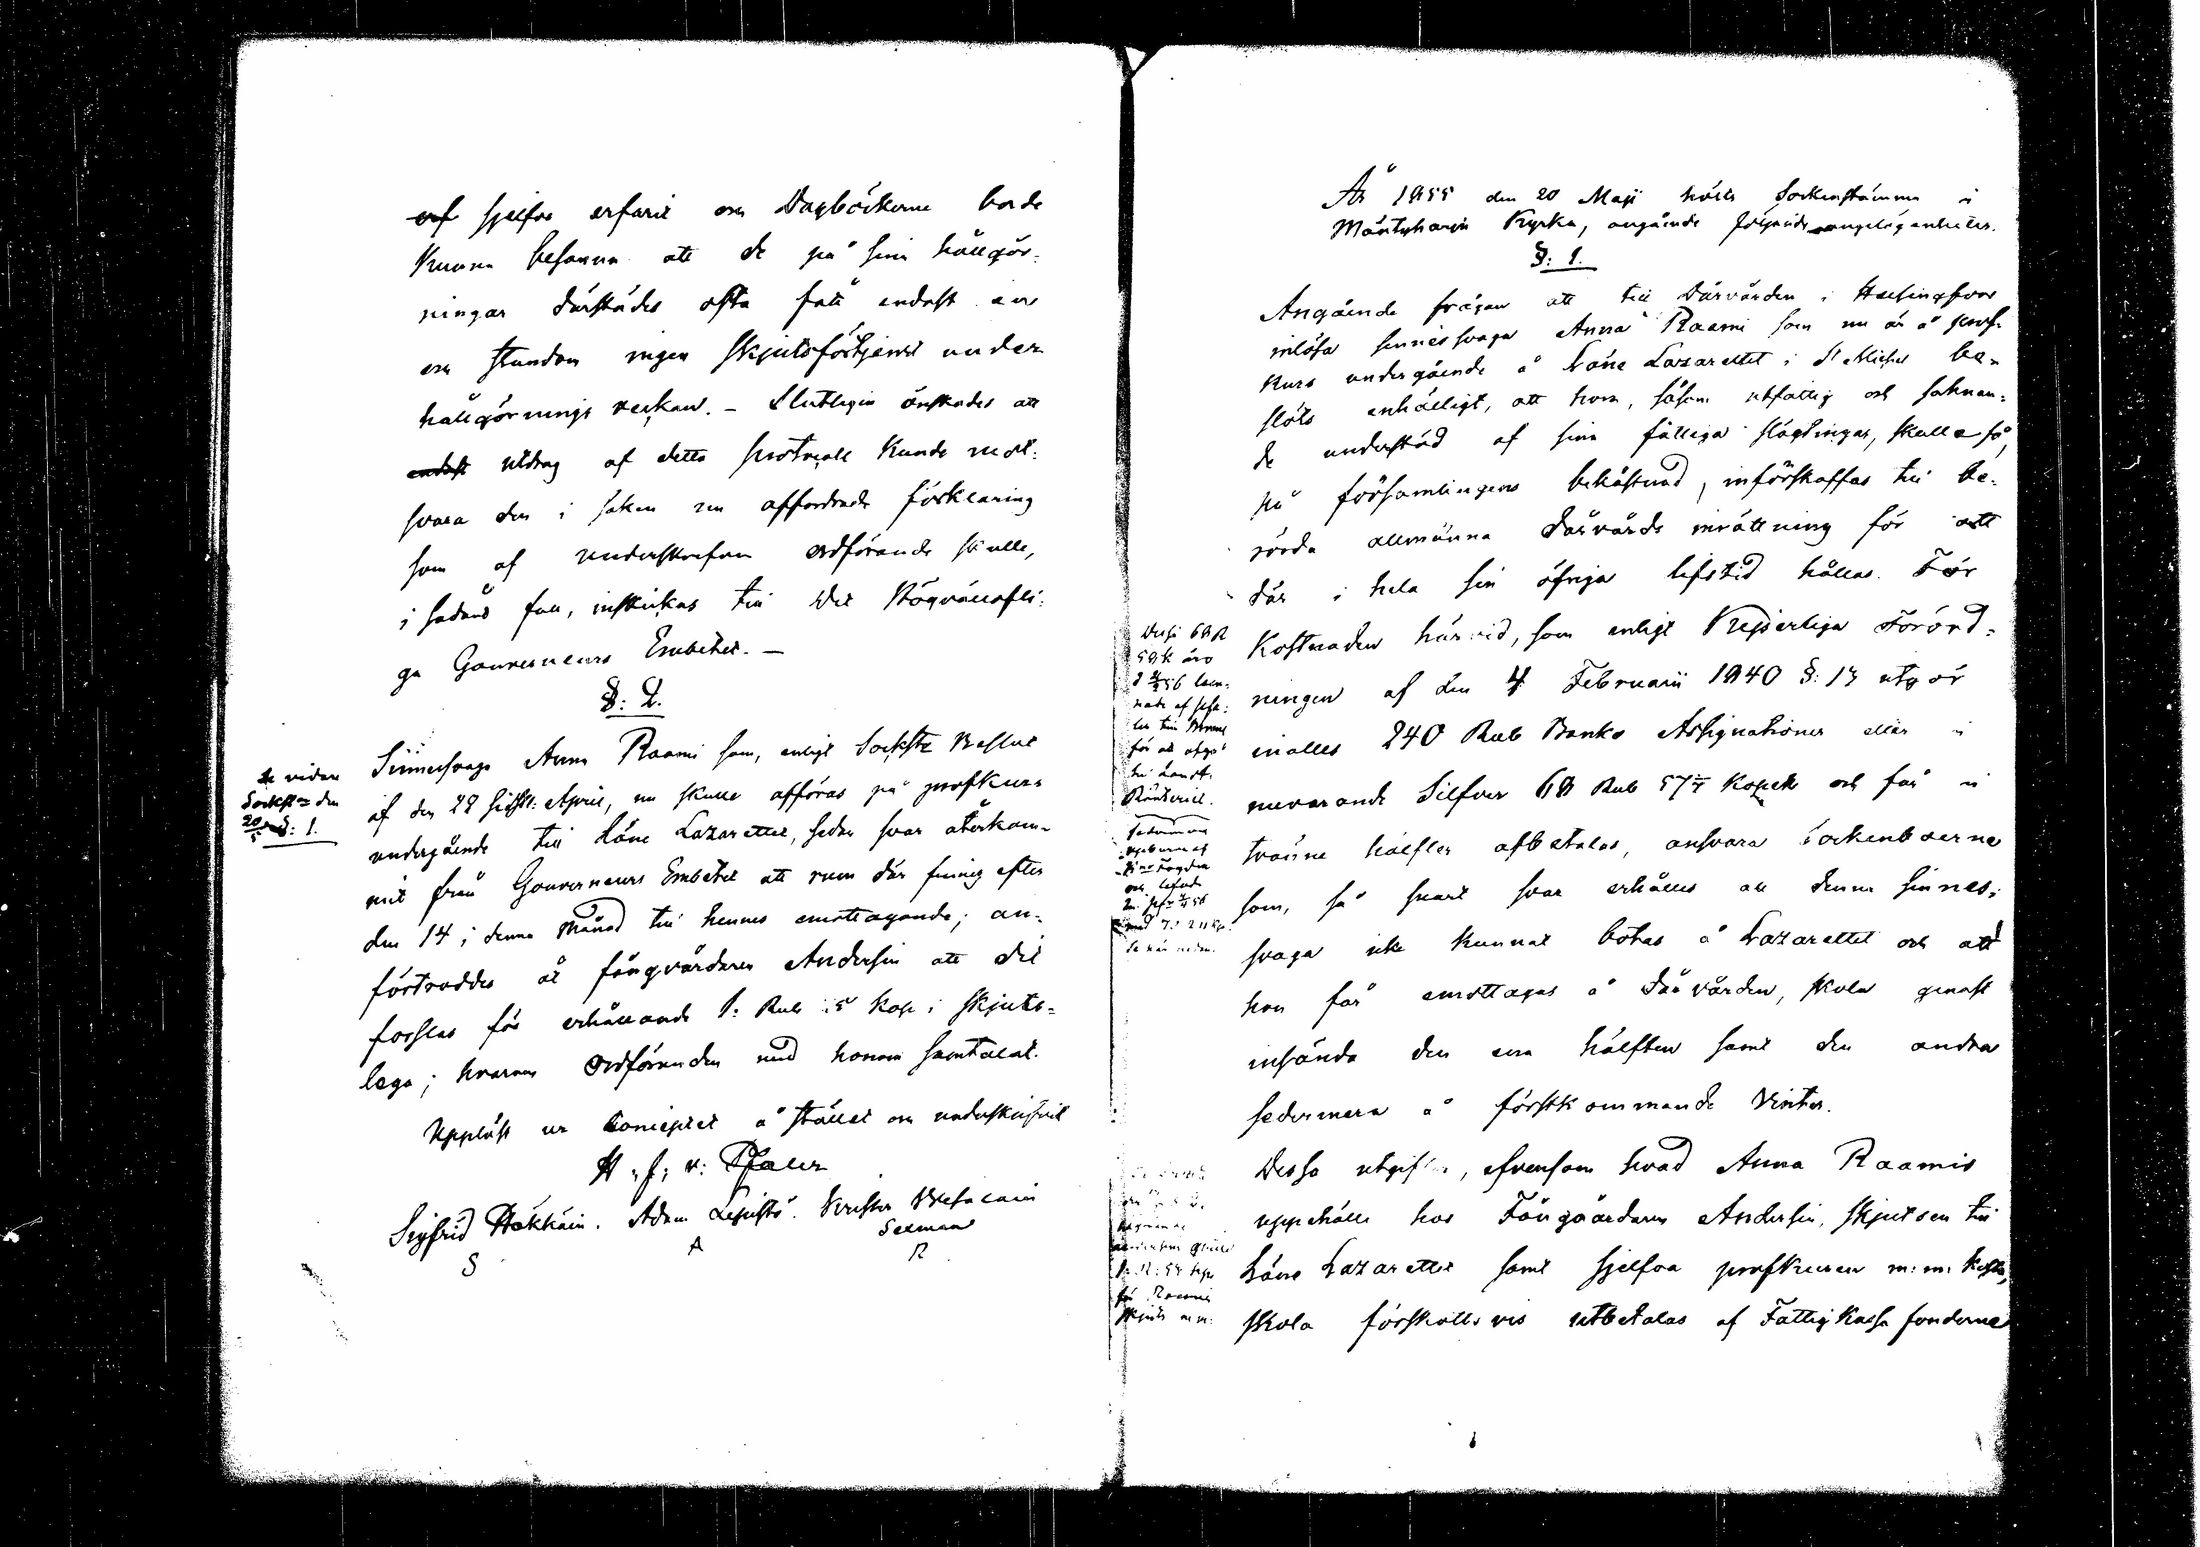 sjelfve erfarit och Dagböckerne borde
kunna besanna att de på sina hållgör-
ningar därstädes ofta fått endast en
och stundom ingen skjutsförtjenst under
hållgörnings veckan. – Slutligen önskades att
utdrag af detta protocoll kunde mot-
svara den i saken nu affordrade förklaring
som af undertecknad ordförande skulle,
i sådant fall, inskickas till det Högvällofli-
ga Gouverneurs Embetet. –
§: 2.
Sinnessvaga Anna Raami som, enligt Sockste Beslut
af den 28 sistl: April, nu skulle afföras på profkurs
undergående till Läne Lazarettet, sedan svar återkom-
mit från Gouverneurs Embetet att rum där finnes efter
den 14 i denna Månad till hennes emottagande; an-
förtroddes åt fångvårdaren Andersin att dit
forslas för erhållande 1: Rub 15 kop i skjuts-
lega; hvarom Ordföranden med honom samtalat.
Uppläst ur Conceptet å stället och underskrifvit
H. J: v: Pfaler
Sigfrid Häkkäin. Adam Lepistö. Krister
S A R
Se vidare
Sockste den
20/5 §: 1.
År 1855 den 20 Maji hölls Sockenstämma i
Mäntyharju Kyrka, angående följande angelägenheter.
§: 1.
Angående frågan att till Dårvården i Helsingfors
inlösa sinnessvaga Anna Raami som nu är å prof-
kurs undergående å Läne Lazarettet i St Michel be-
slöts enhälligt, att hon, såsom utfattig och saknan-
de understöd af sina fattiga slägtingar, skulle få,
på församlingens bekostnad, införskaffas till be-
rörda allmänna Dårvårds inrättning för att
där i hela sin öfriga lifstid hållas. För
Kostnaden härvid, som enligt Kejserliga Förord-
ningen af den 4 Februarii 1840 §: 13 utgör
inalles 240 Rub Banko Assignationer eller i
nuvarande Silfver 68 Rub 57 1/7 Kopek och får i
tvänne hälfter afbetalas, ansvara Sockenboerne
som, så snart svar erhålles att denna sinnes-
svaga icke kunnat botas å Lazarettet och att
hon får emottagas å Dårvården, skola genast
insända den ena hälften samt den andra
sedermera å förstkommande Vinter.
Dessa utgifter, äfvensom hvad Anna Raamis
uppehälle hos Fångvårdaren Andersin, skjutsen till
Läne Lazarettet samt sjelfva profkuren m: m: kosta,
skola förskottsvis utbetalas af Fattig Kassa fonderne